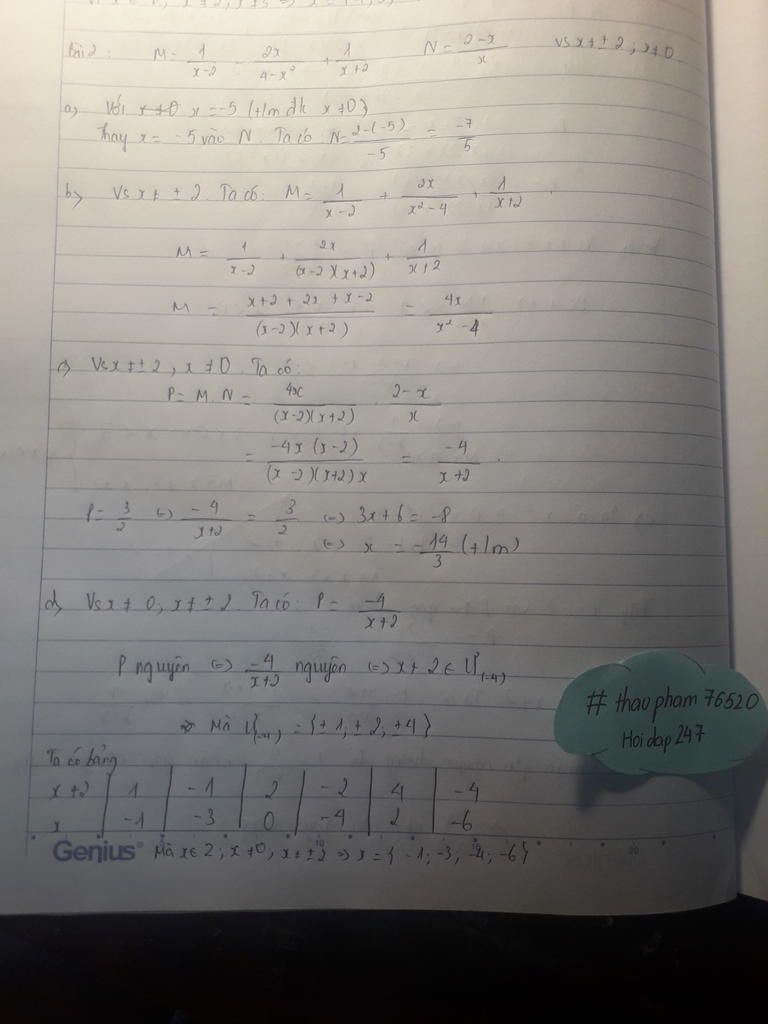 Bài 2: M = 1/(x-2) - 2x/(4-x²) + 1/(x+2) N = (2-x)/x vs x ≠ ± 2 ; x ≠ 0
a, Với x = -5 (t/m đk x ≠ 0)
Thay x = -5 vào N. Ta có N = (2-(-5))/(-5) = -7/5
b, Vs x ≠ ± 2. Ta có: M = 1/(x-2) + 2x/(x²-4) + 1/(x+2)
M = 1/(x-2) + 2x/((x-2)(x+2)) + 1/(x+2)
M = (x+2+2x+x-2)/((x-2)(x+2)) = 4x/(x²-4)
c, Vs x ≠ ± 2, x ≠ 0. Ta có:
P = M. N = 4x/((x-2)(x+2)) . (2-x)/x
= (-4x(x-2))/((x-2)(x+2)x) = -4/(x+2) .
P = 3/2 (=) -4/(x+2) = 3/2 (=) 3x+6 = -8
(=) x = -14/3 (t/m)
d, Vs x ≠ 0, x ≠ ± 2. Ta có: P = -4/(x+2)
P nguyên (=) -4/(x+2) nguyên (=) x+2 ∈ Ư(-4)
Mà Ư(-4) = {±1, ±2, ±4}
Ta có bảng
x+2 | 1 | -1 | 2 | -2 | 4 | -4
x | -1 | -3 | 0 | -4 | 2 | -6
Genius Mà x ∈ Z ; x ≠ 0 ; x ≠ ±2 => x = { -1; -3; -4; -6}
# thaopham 76520
Hoidap 247